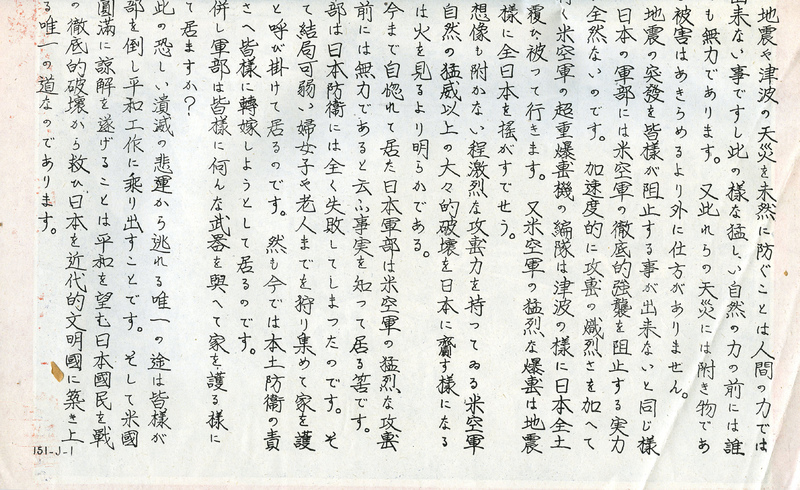 地震や津波の天災を未然に防ぐことは人間の力では
出来ない事ですし此の様な猛しい自然の力の前には誰
も無力であります。又此れらの天災には附き物であ
被害はあきらめるより外に仕方がありません。
地震の突發を皆様が阻止する事が出来ないと同じ様
日本の軍部には米空軍の徹底的強襲を阻止する実力
全然ないのです。加速度的に攻撃の熾烈さを加へて
く米空軍の超重爆撃機の編隊は津波の様に日本全土
覆ひ被って行きます。又米空軍の猛烈な爆撃は地震
様に全日本を搖がすでせう。
想像も附かない程激烈な攻撃力を持つてゐる米空軍
自然の猛威以上の大々的破壊を日本に齎す様になる
は火を見るより明らかである。
今まで自惚れて居た日本軍部は米空軍の猛烈な攻撃
前には無力であると云ふ事実を知って居る筈です。
部は日本防衛には全く失敗してしまつたのです。そ
て結局可弱い婦女子や老人までを狩り集めて家を護
と呼び掛けて居るのです。然も今では本土防衛の責
さへ皆様に轉嫁しようとして居るのです。
併し軍部は皆様に何んな武器を與へて家を護る様に
て居ますか?
此の恐しい潰滅の悲運から逃れる唯一の途は皆様が
部を倒し平和工作に乘り出すことです。そして米國
圓滿に諒解を遂げることは平和を望む日本國民を戰
の徹底的破壊から救ひ日本を近代的文明國に築き上
る唯一の道なのであります。
151-J-1